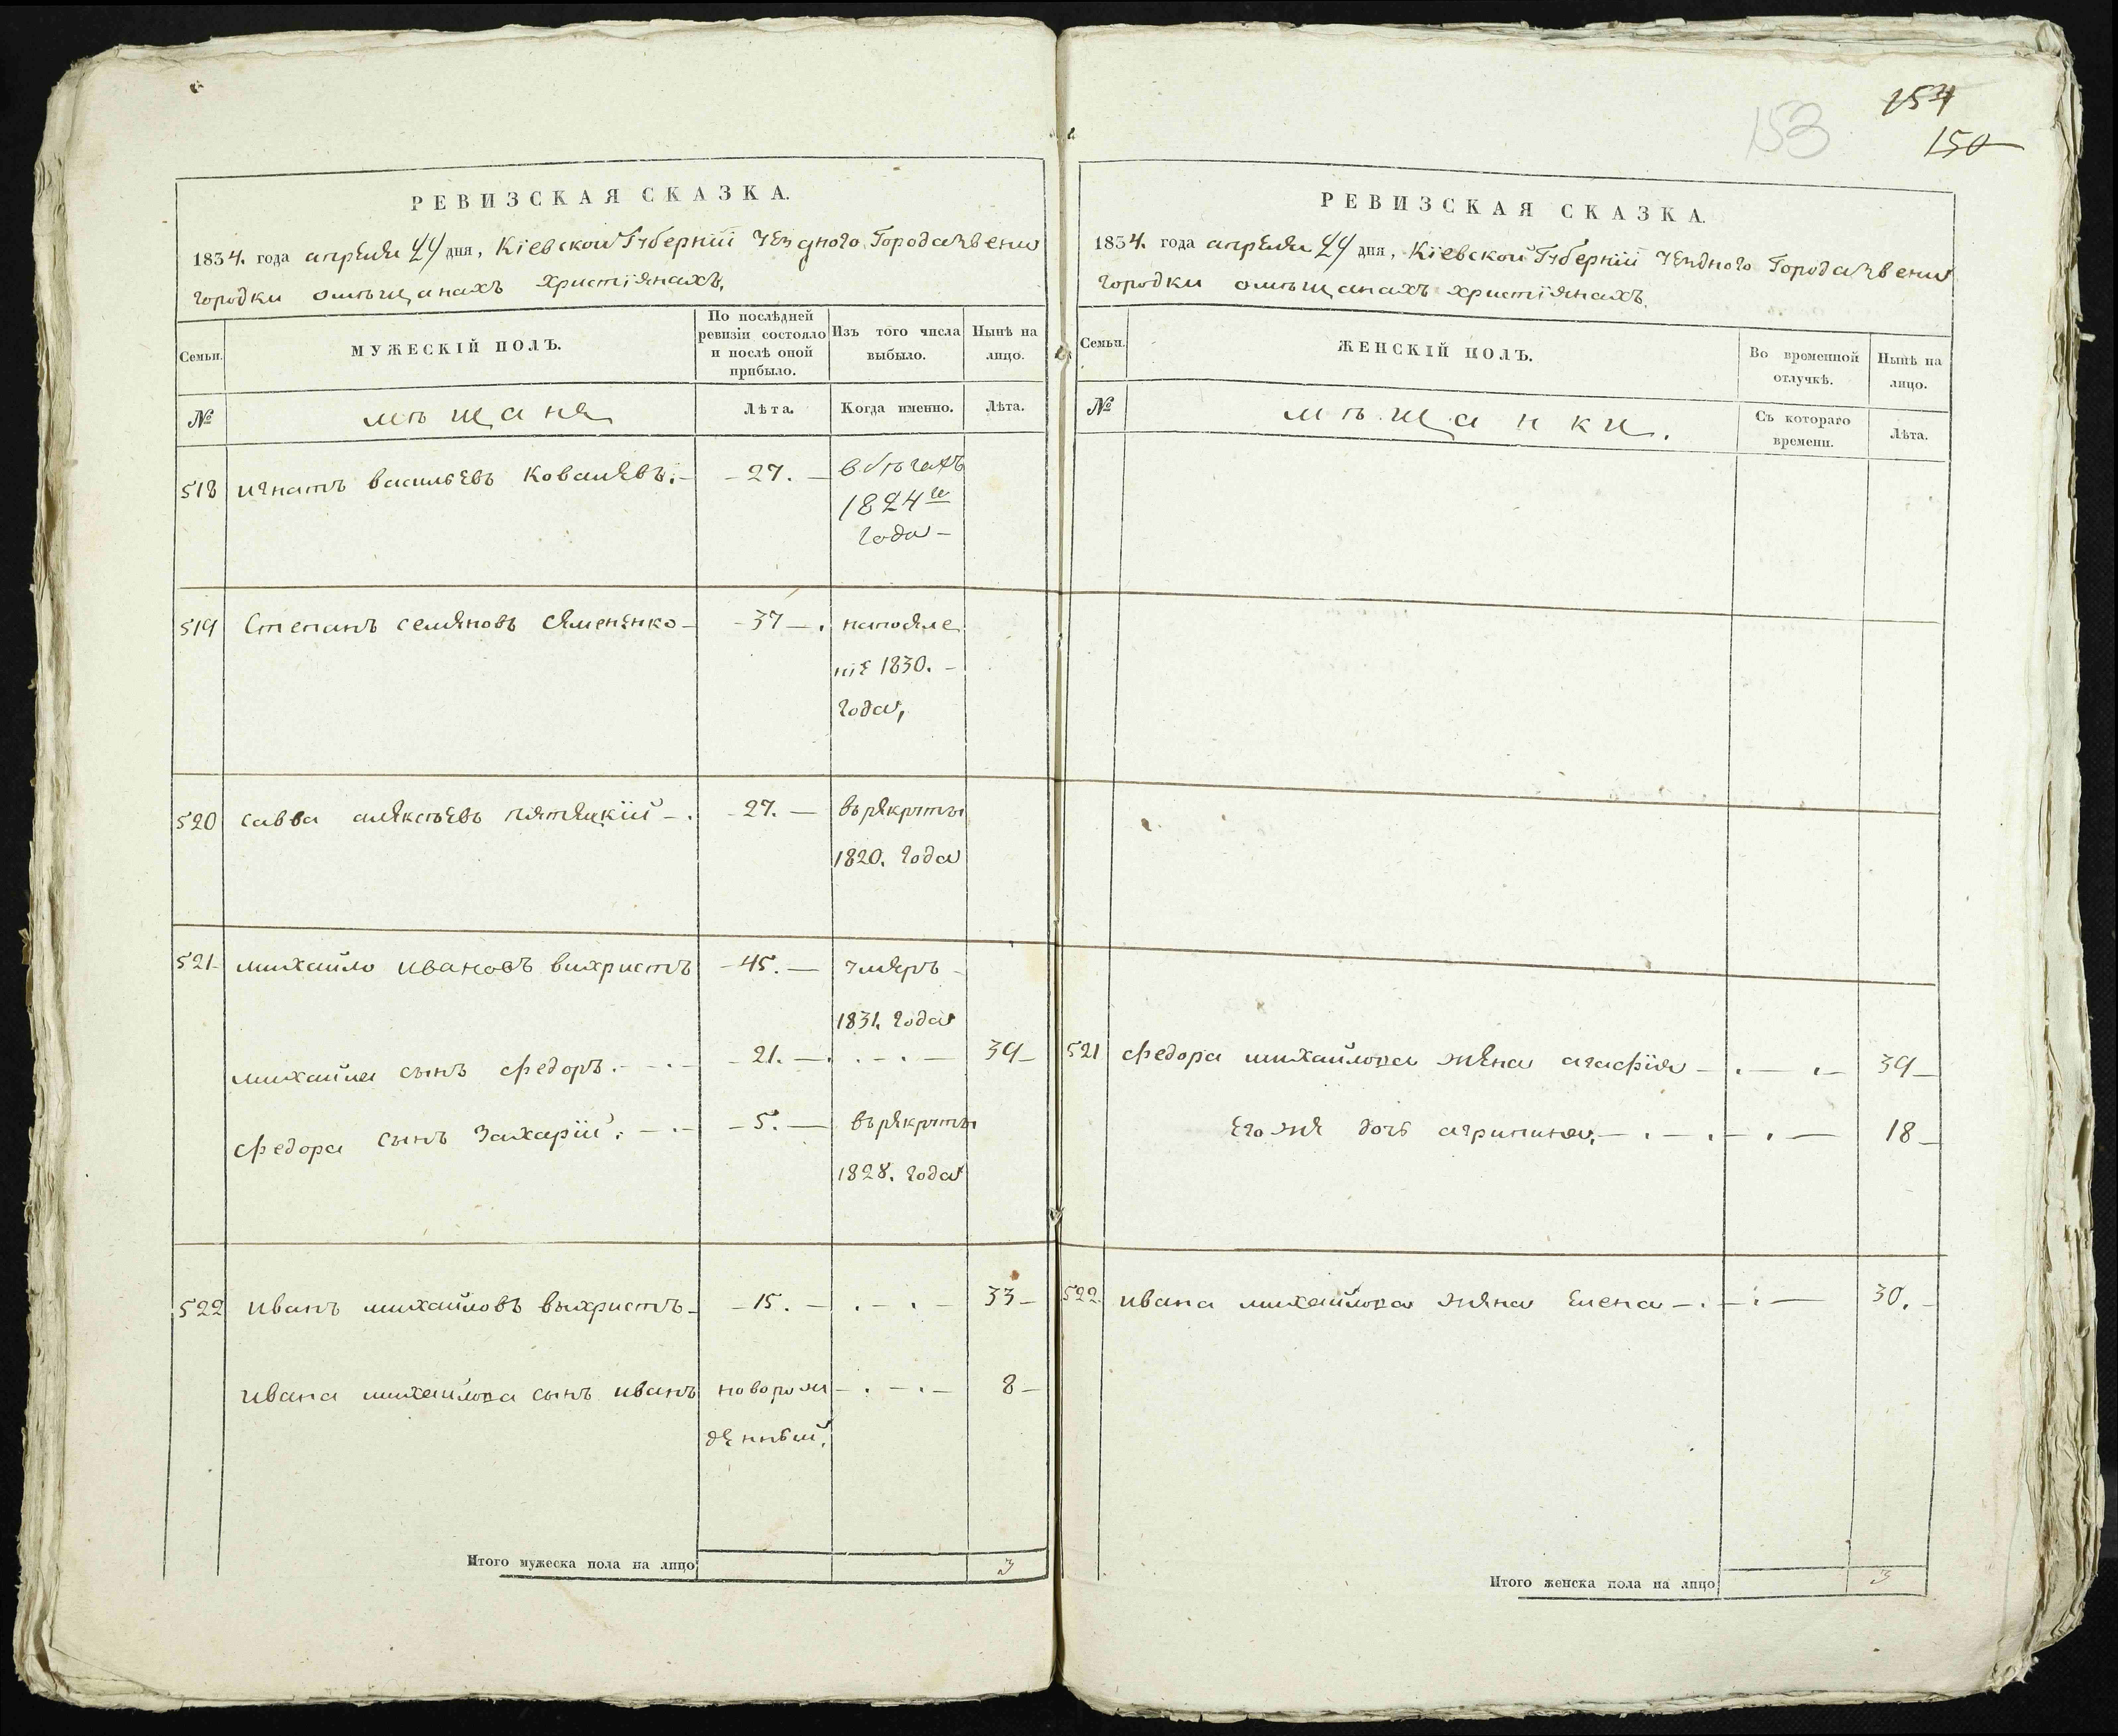 РЕВИЗСКАЯ СКАЗКА.
1834. года апреля 24 дня, Кіевской Губерніи уезднаго Города Звени
городки омѣщанахъ христіянахъ,
Семьи.
МУЖЕСКІЙ ПОЛЪ.
По послѣдней ревизіи состояло и послѣ оной прибыло.
Изъ того числа выбыло.
Нынѣ на лицо.
№
мѣщане
Лѣта.
Когда именно.
Лѣта.
518 игнатъ васильевъ Ковалевъ. 27. вбѣгахъ
1824го
года
519 Степанъ семяновъ Семененко 37
ніе 1830.
года,
520 савва алексѣевъ 27. върекруты
1820. года
521 михайло ивановъ вихристъ 45. умеръ
1831. года
михайла сынъ федоръ. 21. 39
федора сынъ Захарій. 5. върекруты
1828. года
522 иванъ михайловъ выхристъ 15. 33
ивана михайлова сынъ иванъ новорож 8
денный.
Итого мужеска пола на лицо 3
153
154
150
РЕВИЗСКАЯ СКАЗКА.
1834. года апреля 24 дня, Кіевской Губерніи уезднаго Города Звени
городки омѣщанахъ христіянахъ.
Семьи.
ЖЕНСКІЙ ПОЛЪ.
Во временной отлучкѣ.
Нынѣ на лицо.
№
мѣщанки.
Съ котораго времени.
Лѣта.
521 федора михайлова жена агафія 39
его же дочь агрипина, 18
522 ивана михайлова жена Елена 30.
Итого женска пола на лицо 3